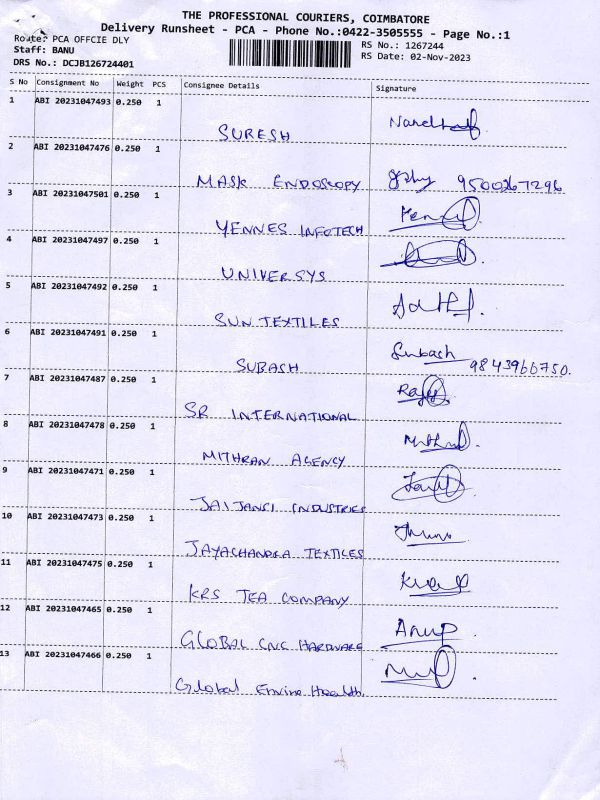 THE PROFESSIONAL COURIERS, COIMBATORE
Delivery Runsheet - PCA - Phone No.:0422-3505555 - Page No.:1
Route: PCA OFFCIE DLY
Staff: BANU
DRS No.: DCJB126724401
RS No.: 1267244
RS Date: 02-Nov-2023
S No Consignment No Weight PCS Consignee Details Signature
1 ABI 20231047493 0.250 1
SURESH
2 ABI 20231047476 0.250 1
MASK ENDOSCOPY 9500267296
3 ABI 20231047501 0.250 1
YENNES INFOTECH
4 ABI 20231047497 0.250 1
UNIVERSYS
5 ABI 20231047492 0.250 1
SUN TEXTILES
6 ABI 20231047491 0.250 1 Subash
SUBASH 9843966750.
7 ABI 20231047487 0.250 1
SR INTERNATIONAL
8 ABI 20231047478 0.250 1
MITHRAN AGENCY
9 ABI 20231047471 0.250 1
JAIJANSI INDUSTRIES
10 ABI 20231047473 0.250 1
JAYACHANDRA TEXTILES
11 ABI 20231047475 0.250 1
KRS TEA COMPANY
12 ABI 20231047465 0.250 1 Anup
GLOBAL CNC HARDWARE
13 ABI 20231047466 0.250 1
Global Enviro Health.